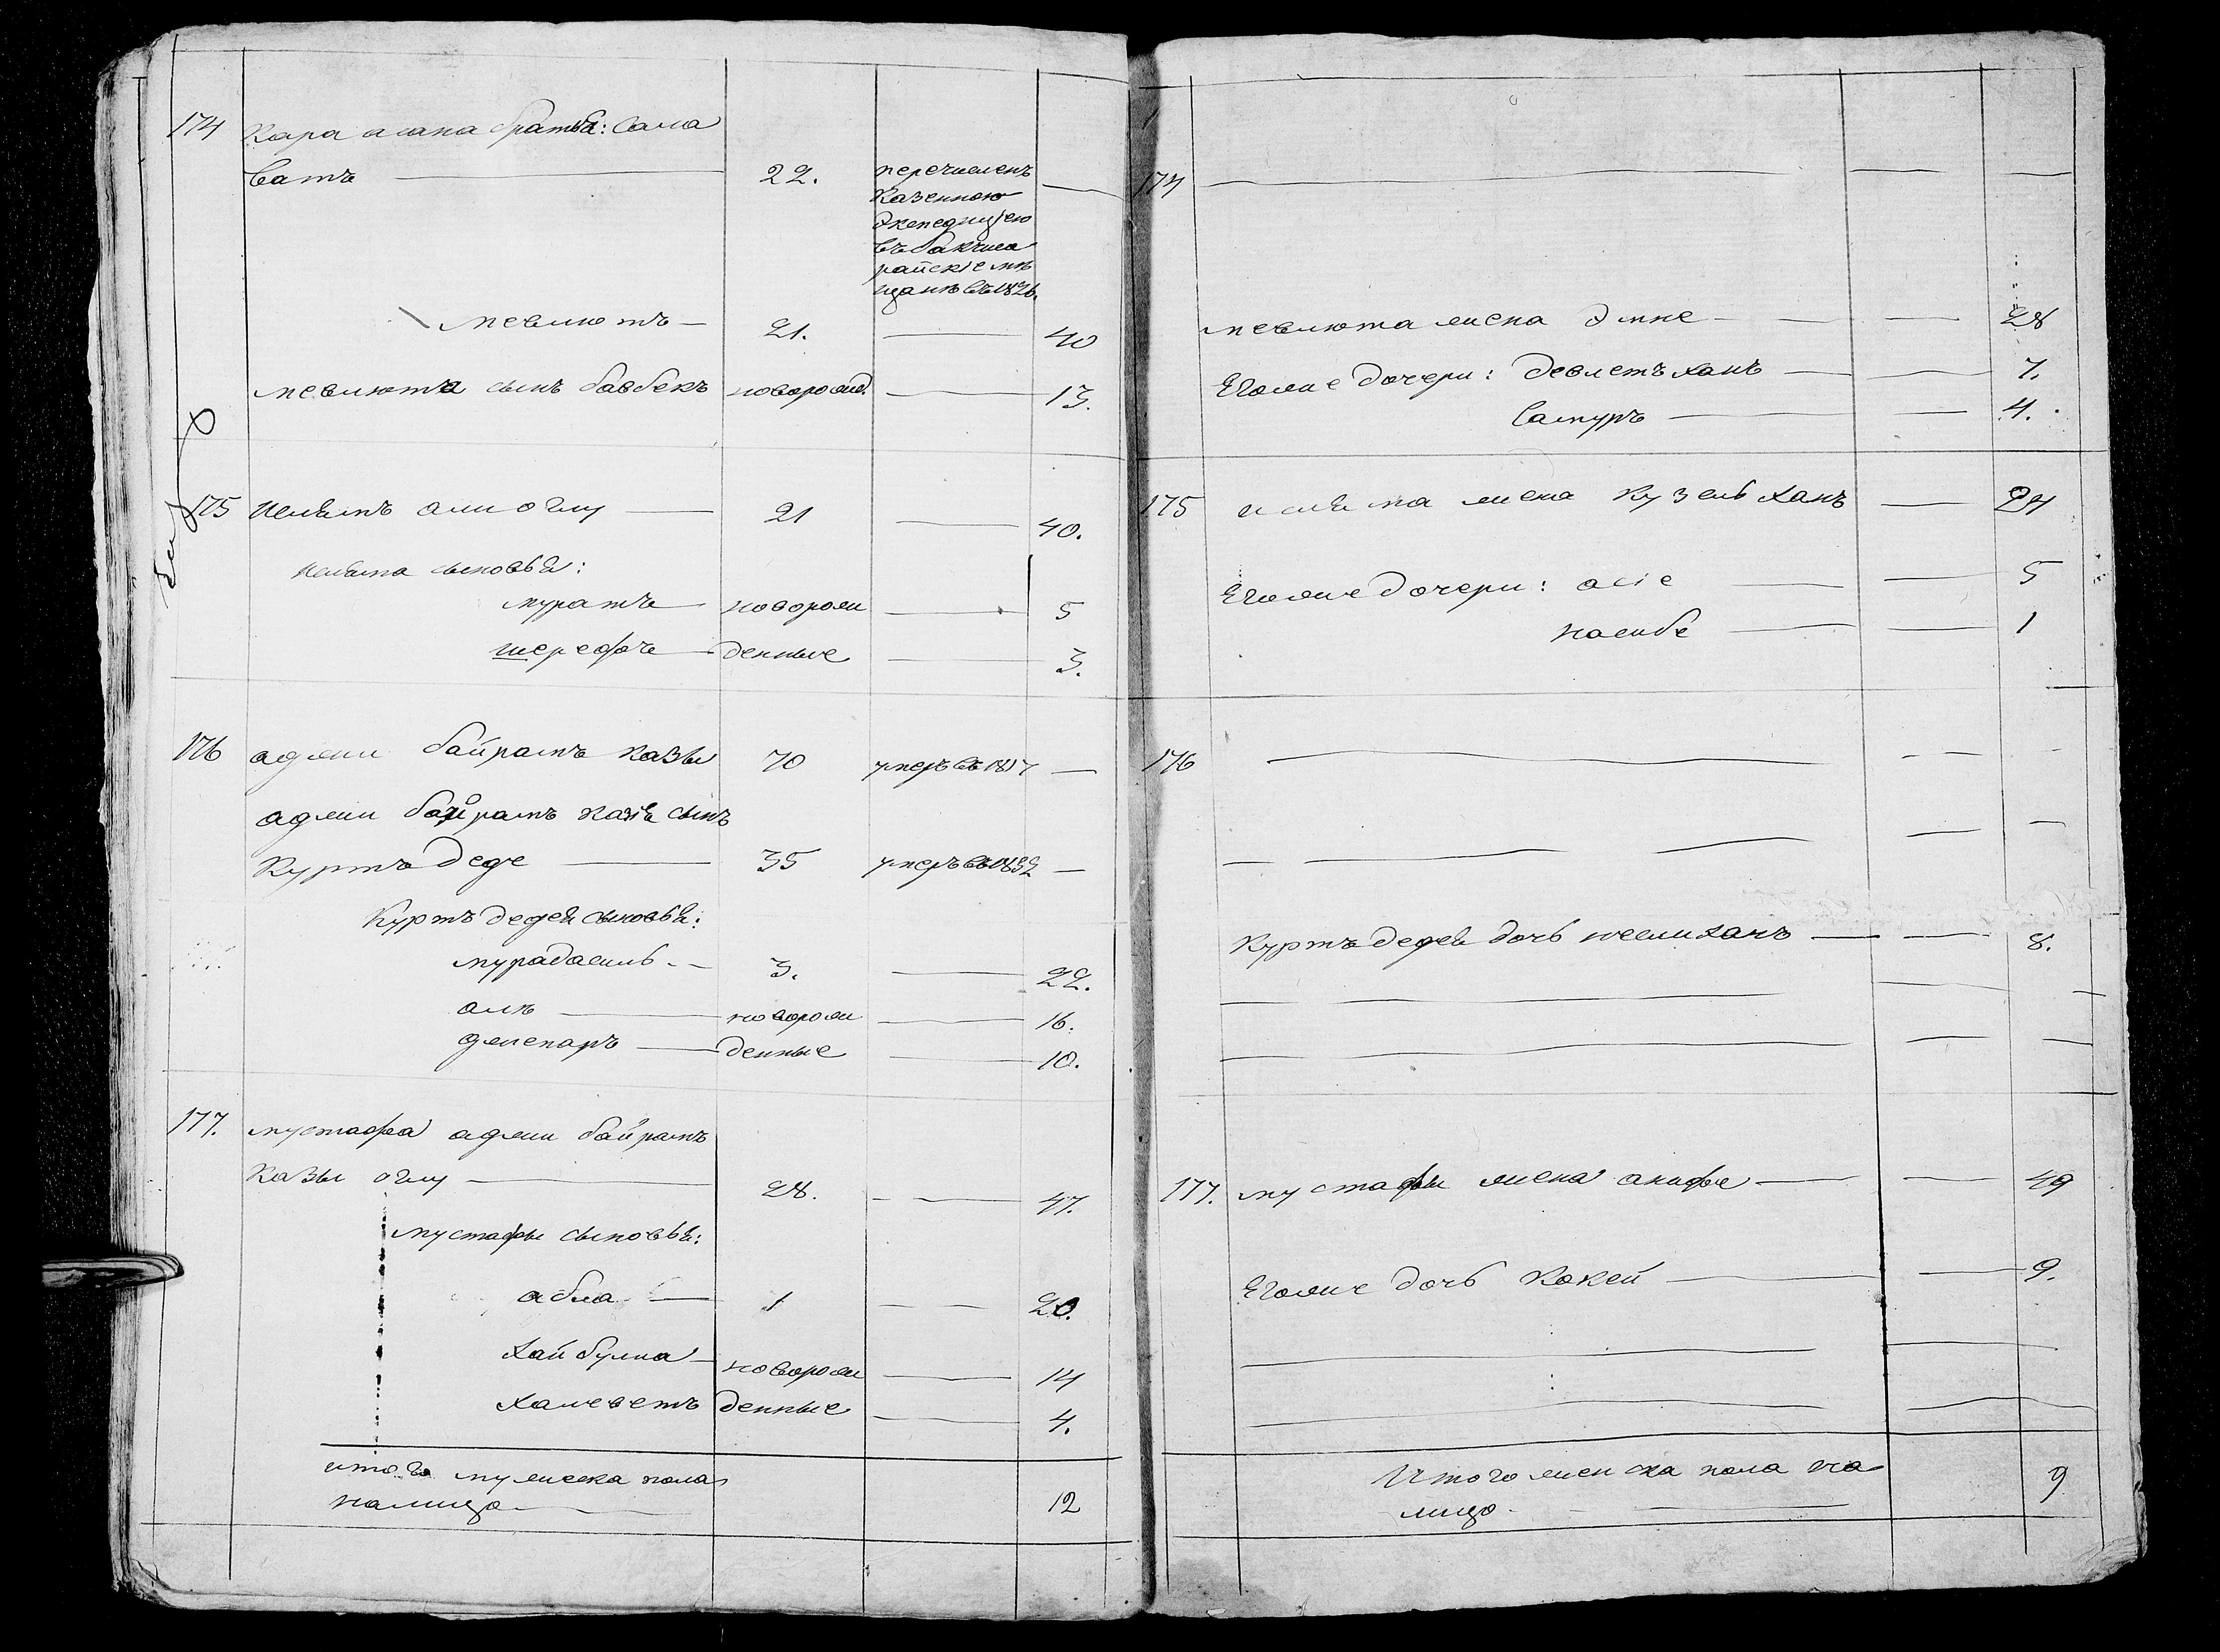 174 Кара асана братья: Сама
ватъ 22. перечисленъ
Казенною
Экспедицiею
въ бакчиса
райскiе мѣ
щанѣ въ 1826.
мевлютъ 21. 40
мевлюта сынъ бавбекъ новорожд. 13.
175 Ислямъ али оглу 21 40.
Исляма сыновья:
муратъ новорож 5
шерефъ денные 3.
176 аджи байрамъ казы 70 умеръ въ 1817
аджи байрамъ казѣ сынъ
Куртъ деде 35 умеръ въ 1832
Куртъ дедея сыновья:
мурадасиль 3. 22.
али новорож 16.
джепаръ денные 10.
177. мустафа аджи байрамъ
казы оглу 28. 47.
мустафы сыновья:
абла 1 20.
хайбулла новорож 14
халеветъ денные 4.
итого мужеска пола
налицо 12
174
мевлюта жена Эмне 28
Егоже дочери: девлетъ ханъ 7.
Самуръ 4.
175 исляма жена Кузель ханъ 24
Егоже дочери: асiе 5
насибе 1
176
Куртъ дедея дочь неслиханъ 8.
177. мустафы жена анифе 49
Егоже дочь Кокей 9.
Итого женска пола на
лицо 9